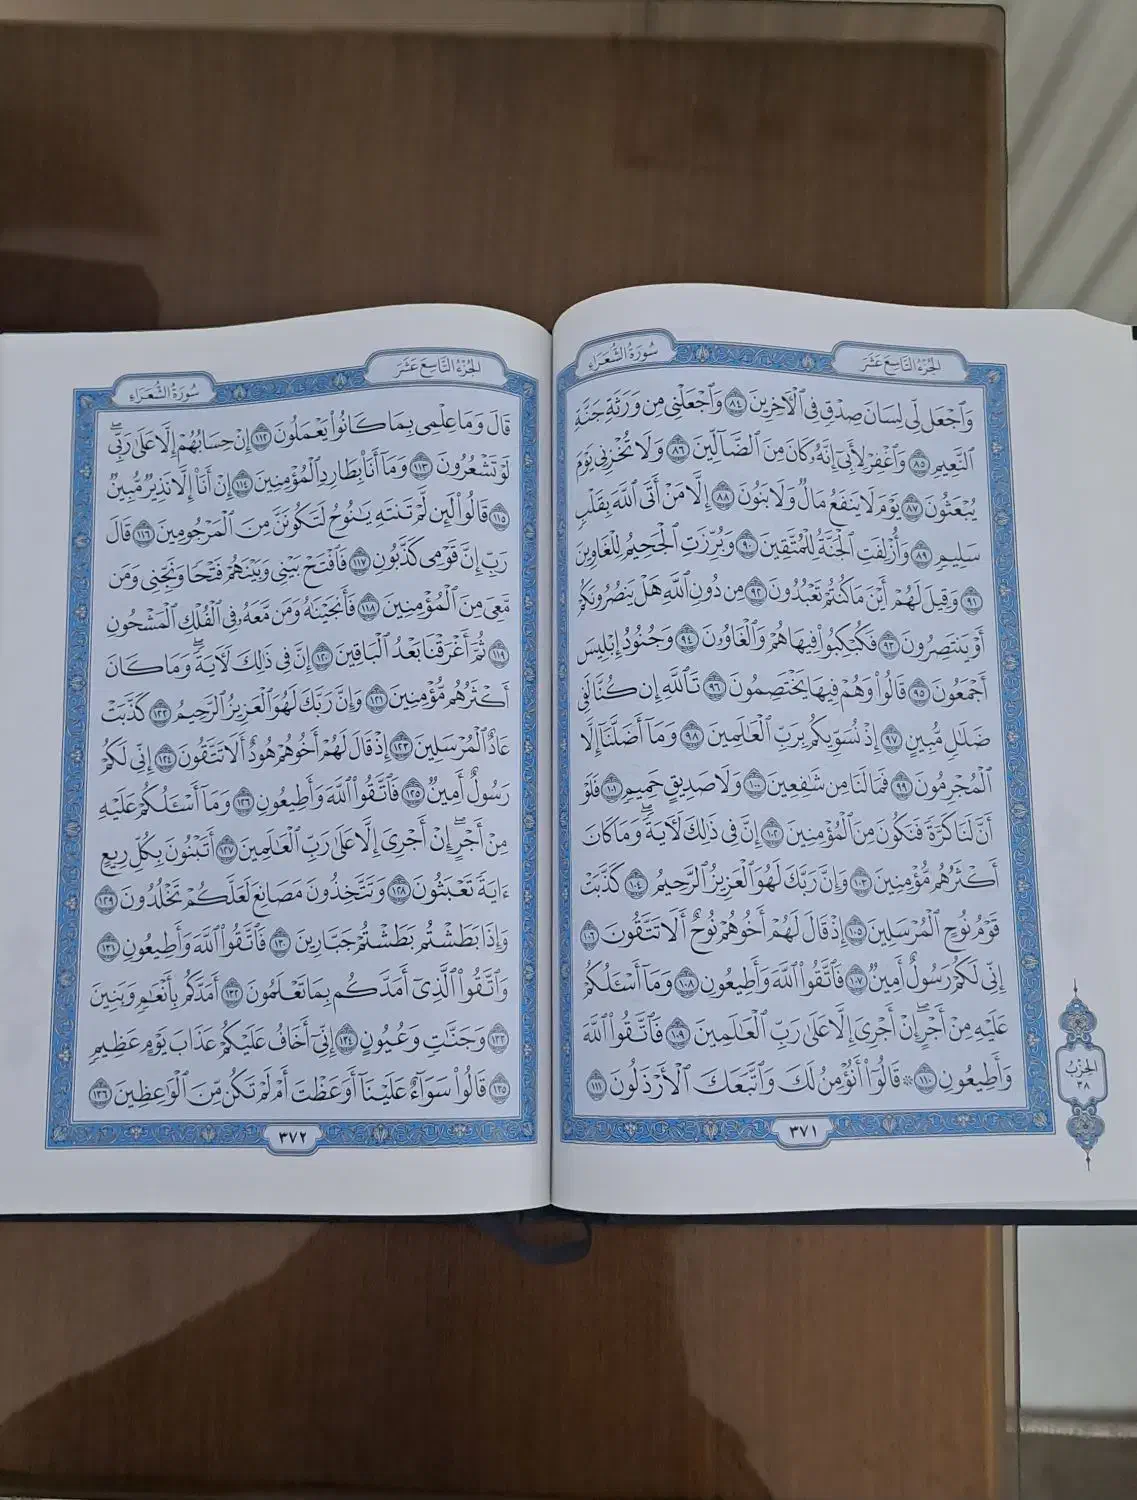 الجزء التاسع عشر
سورة الشعراء
وَٱجۡعَل لِّي لِسَانَ صِدۡقٖ فِي ٱلۡأٓخِرِينَ ٨٤ وَٱجۡعَلۡنِي مِن وَرَثَةِ جَنَّةِ
ٱلنَّعِيمِ ٨٥ وَٱغۡفِرۡ لِأَبِيٓ إِنَّهُۥ كَانَ مِنَ ٱلضَّآلِّينَ ٨٦ وَلَا تُخۡزِنِي يَوۡمَ
يُبۡعَثُونَ ٨٧ يَوۡمَ لَا يَنفَعُ مَالٞ وَلَا بَنُونَ ٨٨ إِلَّا مَنۡ أَتَى ٱللَّهَ بِقَلۡبٖ
سَلِيمٖ ٨٩ وَأُزۡلِفَتِ ٱلۡجَنَّةُ لِلۡمُتَّقِينَ ٩٠ وَبُرِّزَتِ ٱلۡجَحِيمُ لِلۡغَاوِينَ
٩١ وَقِيلَ لَهُمۡ أَيۡنَ مَا كُنتُمۡ تَعۡبُدُونَ ٩٢ مِن دُونِ ٱللَّهِ هَلۡ يَنصُرُونَكُمۡ
أَوۡ يَنتَصِرُونَ ٩٣ فَكُبۡكِبُواْ فِيهَا هُمۡ وَٱلۡغَاوُۥنَ ٩٤ وَجُنُودُ إِبۡلِيسَ
أَجۡمَعُونَ ٩٥ قَالُواْ وَهُمۡ فِيهَا يَخۡتَصِمُونَ ٩٦ تَٱللَّهِ إِن كُنَّا لَفِي
ضَلَٰلٖ مُّبِينٍ ٩٧ إِذۡ نُسَوِّيكُم بِرَبِّ ٱلۡعَٰلَمِينَ ٩٨ وَمَآ أَضَلَّنَآ إِلَّا
ٱلۡمُجۡرِمُونَ ٩٩ فَمَا لَنَا مِن شَٰفِعِينَ ١٠٠ وَلَا صَدِيقٍ حَمِيمٖ ١٠١ فَلَوۡ
أَنَّ لَنَا كَرَّةٗ فَنَكُونَ مِنَ ٱلۡمُؤۡمِنِينَ ١٠٢ إِنَّ فِي ذَٰلِكَ لَأٓيَةٗۖ وَمَا كَانَ
أَكۡثَرُهُم مُّؤۡمِنِينَ ١٠٣ وَإِنَّ رَبَّكَ لَهُوَ ٱلۡعَزِيزُ ٱلرَّحِيمُ ١٠٤ كَذَّبَتۡ
قَوۡمُ نُوحٍ ٱلۡمُرۡسَلِينَ ١٠٥ إِذۡ قَالَ لَهُمۡ أَخُوهُمۡ نُوحٌ أَلَا تَتَّقُونَ ١٠٦
إِنِّي لَكُمۡ رَسُولٌ أَمِينٞ ١٠٧ فَٱتَّقُواْ ٱللَّهَ وَأَطِيعُونِ ١٠٨ وَمَآ أَسۡـَٔلُكُمۡ
عَلَيۡهِ مِنۡ أَجۡرٍۖ إِنۡ أَجۡرِيَ إِلَّا عَلَىٰ رَبِّ ٱلۡعَٰلَمِينَ ١٠٩ فَٱتَّقُواْ ٱللَّهَ
وَأَطِيعُونِ ١١٠ ۞ قَالُوٓاْ أَنُؤۡمِنُ لَكَ وَٱتَّبَعَكَ ٱلۡأَرۡذَلُونَ ١١١
الحزب
٣٨
٣٧١
الجزء التاسع عشر
سورة الشعراء
قَالَ وَمَا عِلۡمِي بِمَا كَانُواْ يَعۡمَلُونَ ١١٢ إِنۡ حِسَابُهُمۡ إِلَّا عَلَىٰ رَبِّيۖ
لَوۡ تَشۡعُرُونَ ١١٣ وَمَآ أَنَا۠ بِطَارِدِ ٱلۡمُؤۡمِنِينَ ١١٤ إِنۡ أَنَا۠ إِلَّا نَذِيرٞ مُّبِينٞ
١١٥ قَالُواْ لَئِن لَّمۡ تَنتَهِ يَٰنُوحُ لَتَكُونَنَّ مِنَ ٱلۡمَرۡجُومِينَ ١١٦ قَالَ
رَبِّ إِنَّ قَوۡمِي كَذَّبُونِ ١١٧ فَٱفۡتَحۡ بَيۡنِي وَبَيۡنَهُمۡ فَتۡحٗا وَنَجِّنِي وَمَن
مَّعِيَ مِنَ ٱلۡمُؤۡمِنِينَ ١١٨ فَأَنجَيۡنَٰهُ وَمَن مَّعَهُۥ فِي ٱلۡفُلۡكِ ٱلۡمَشۡحُونِ
١١٩ ثُمَّ أَغۡرَقۡنَا بَعۡدُ ٱلۡبَاقِينَ ١٢٠ إِنَّ فِي ذَٰلِكَ لَأٓيَةٗۖ وَمَا كَانَ
أَكۡثَرُهُم مُّؤۡمِنِينَ ١٢١ وَإِنَّ رَبَّكَ لَهُوَ ٱلۡعَزِيزُ ٱلرَّحِيمُ ١٢٢ كَذَّبَتۡ
عَادٌ ٱلۡمُرۡسَلِينَ ١٢٣ إِذۡ قَالَ لَهُمۡ أَخُوهُمۡ هُودٌ أَلَا تَتَّقُونَ ١٢٤ إِنِّي لَكُمۡ
رَسُولٌ أَمِينٞ ١٢٥ فَٱتَّقُواْ ٱللَّهَ وَأَطِيعُونِ ١٢٦ وَمَآ أَسۡـَٔلُكُمۡ عَلَيۡهِ
مِنۡ أَجۡرٍۖ إِنۡ أَجۡرِيَ إِلَّا عَلَىٰ رَبِّ ٱلۡعَٰلَمِينَ ١٢٧ أَتَبۡنُونَ بِكُلِّ رِيعٍ
ءَايَةٗ تَعۡبَثُونَ ١٢٨ وَتَتَّخِذُونَ مَصَانِعَ لَعَلَّكُمۡ تَخۡلُدُونَ ١٢٩
وَإِذَا بَطَشۡتُم بَطَشۡتُمۡ جَبَّارِينَ ١٣٠ فَٱتَّقُواْ ٱللَّهَ وَأَطِيعُونِ ١٣١
وَٱتَّقُواْ ٱلَّذِيٓ أَمَدَّكُم بِمَا تَعۡلَمُونَ ١٣٢ أَمَدَّكُم بِأَنۡعَٰمٖ وَبَنِينَ
١٣٣ وَجَنَّٰتٖ وَعُيُونٍ ١٣٤ إِنِّيٓ أَخَافُ عَلَيۡكُمۡ عَذَابَ يَوۡمٍ عَظِيمٖ
١٣٥ قَالُواْ سَوَآءٌ عَلَيۡنَآ أَوَعَظۡتَ أَمۡ لَمۡ تَكُن مِّنَ ٱلۡوَٰعِظِينَ ١٣٦
٣٧٢